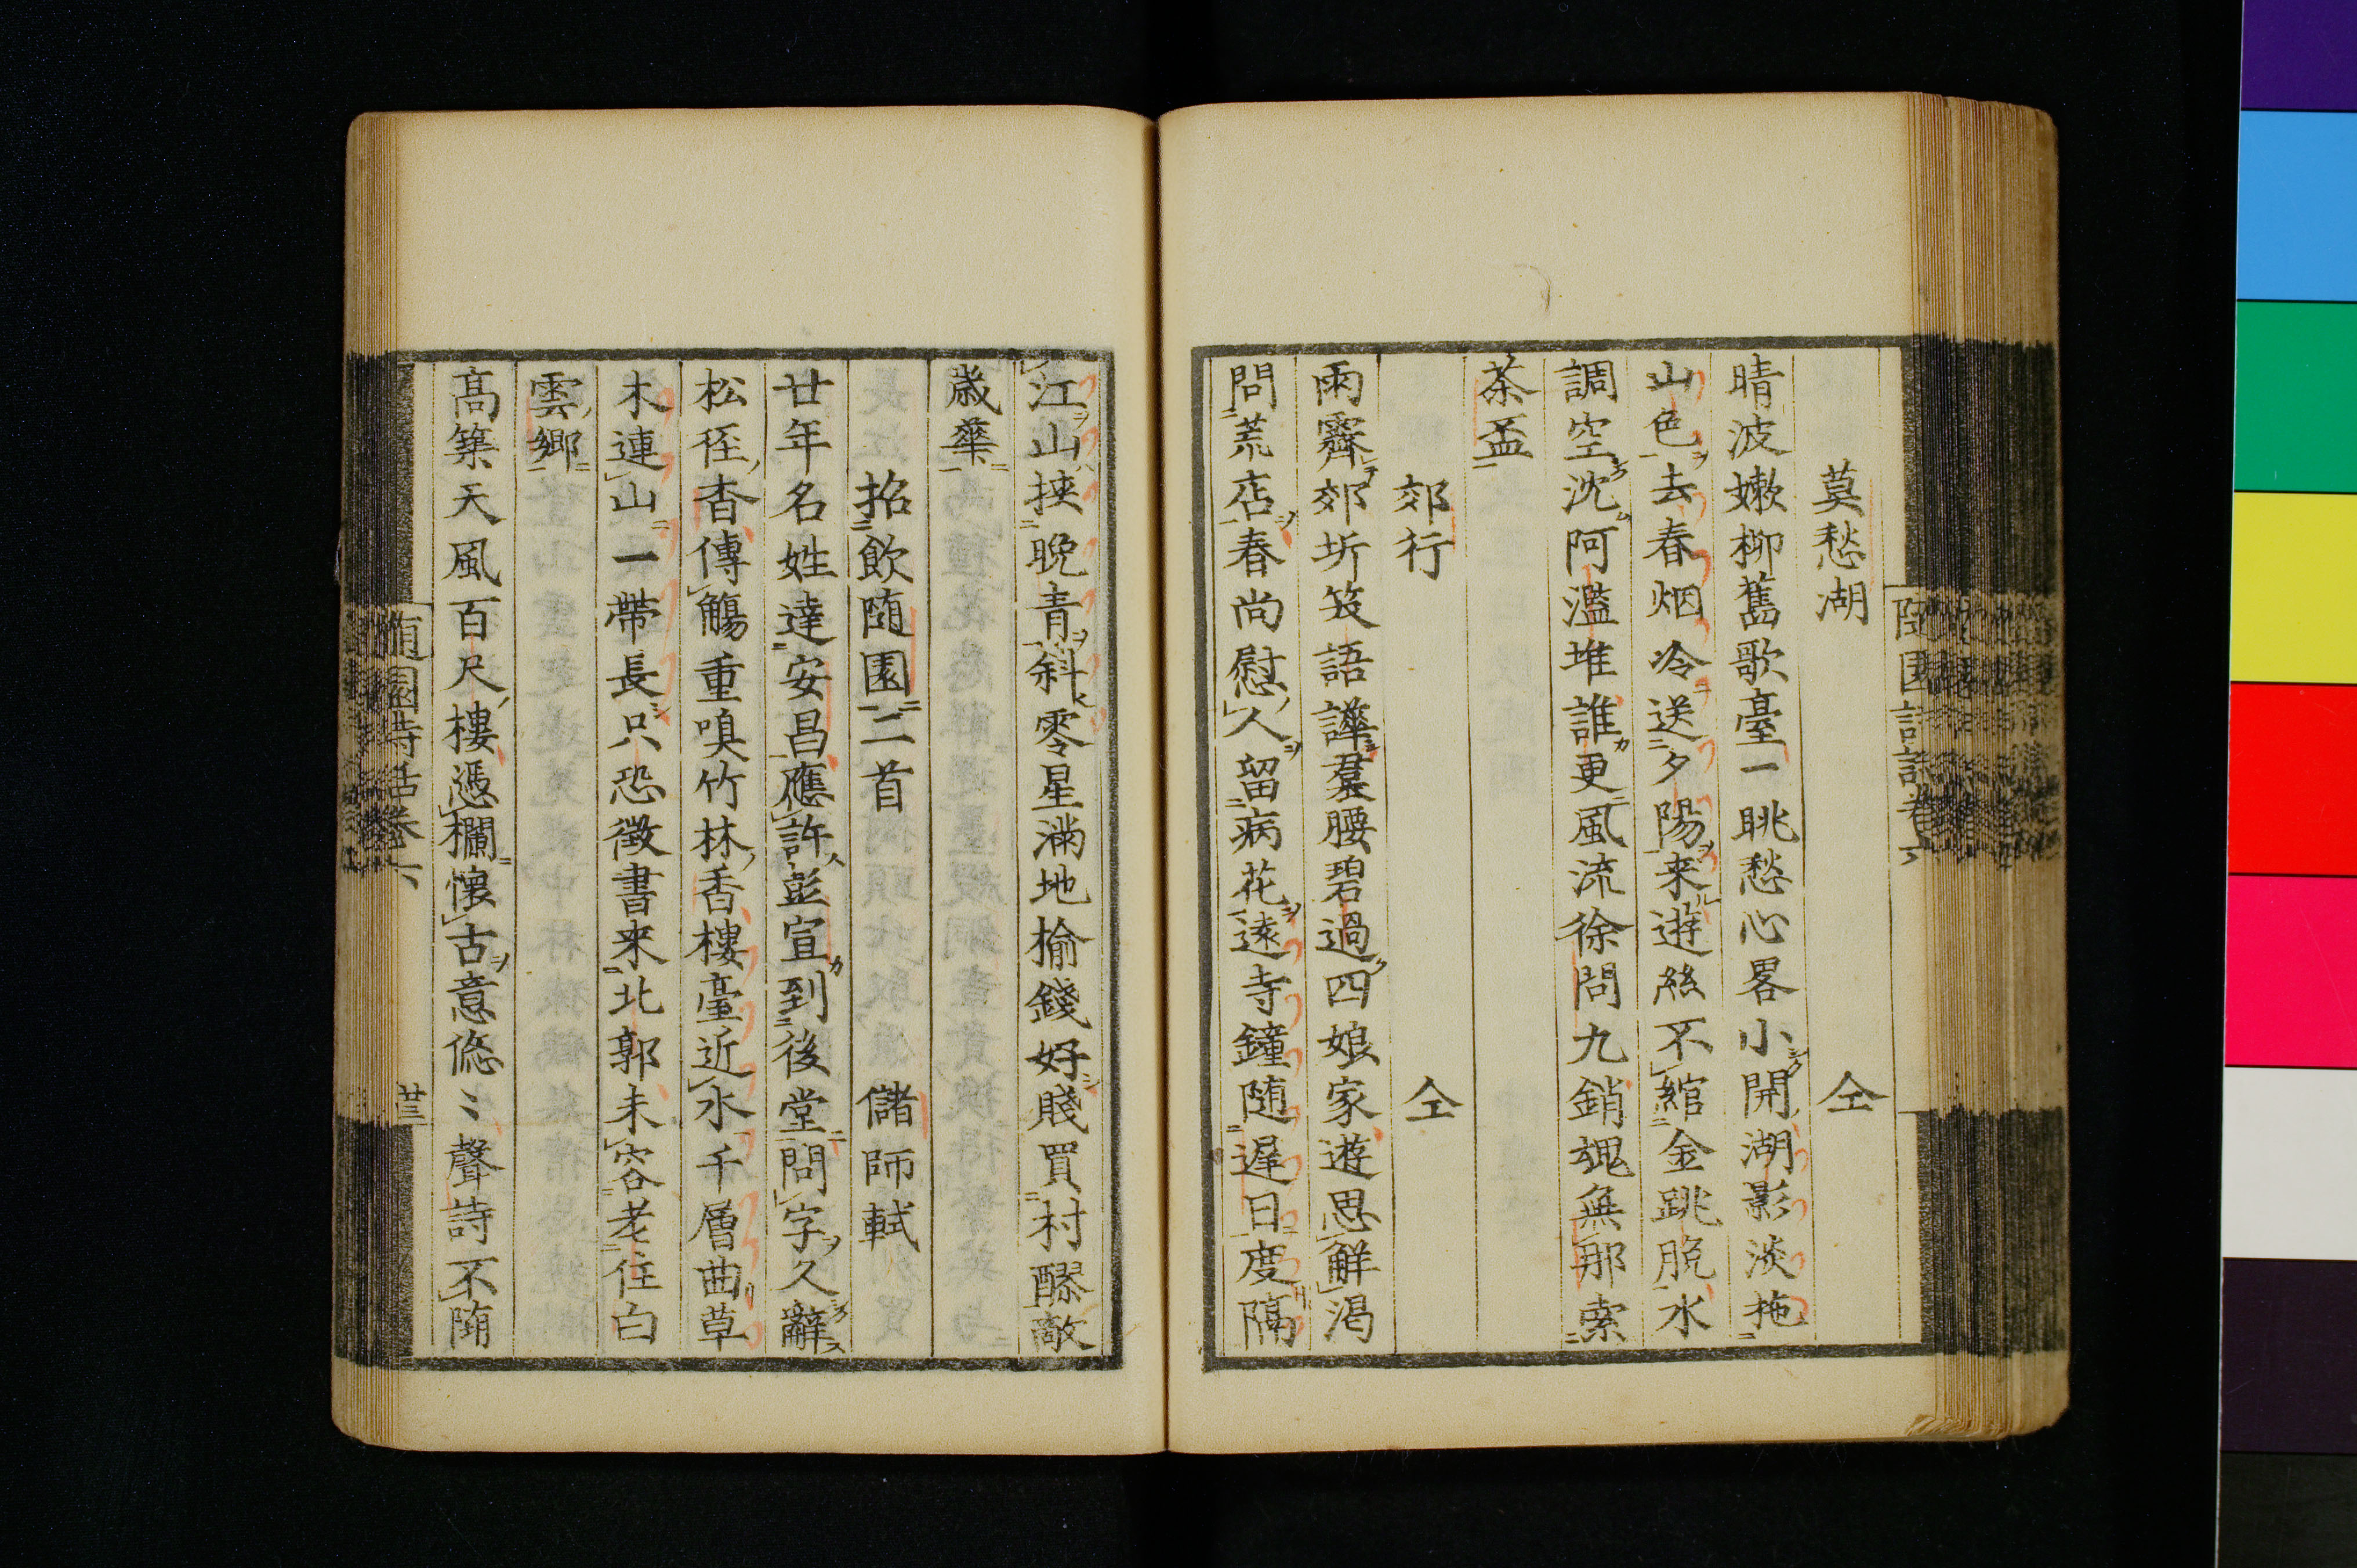 莫愁湖　仝
晴波嫩柳舊歌臺一眺愁心畧小開湖影淡拖
山色去春烟冷送夕陽来遊絲不綰金跳脫水
調空沈阿濫堆誰更風流徐問九銷魂無那索
茶盃
郊行　仝
雨霽郊圻笑語譁羣腰碧過四娘家遊思解渴
問荒店春尚慰人留病花遠寺鐘随遅日度隔
江山挾晩青斜零星滿地榆錢好賤買村醪敵
歳華
招飲随園二首　儲師軾
廿年名姓達安昌應許彭宣到後堂問字久辭
松徑杳傳觴重嗅竹林香樓臺近水千層曲草
木連山一帶長只恐徵書来北郭未容老住白
雲鄉
高築天風百尺樓憑欄懷古意悠〻聲詩不随
随園詩話卷六
廿三